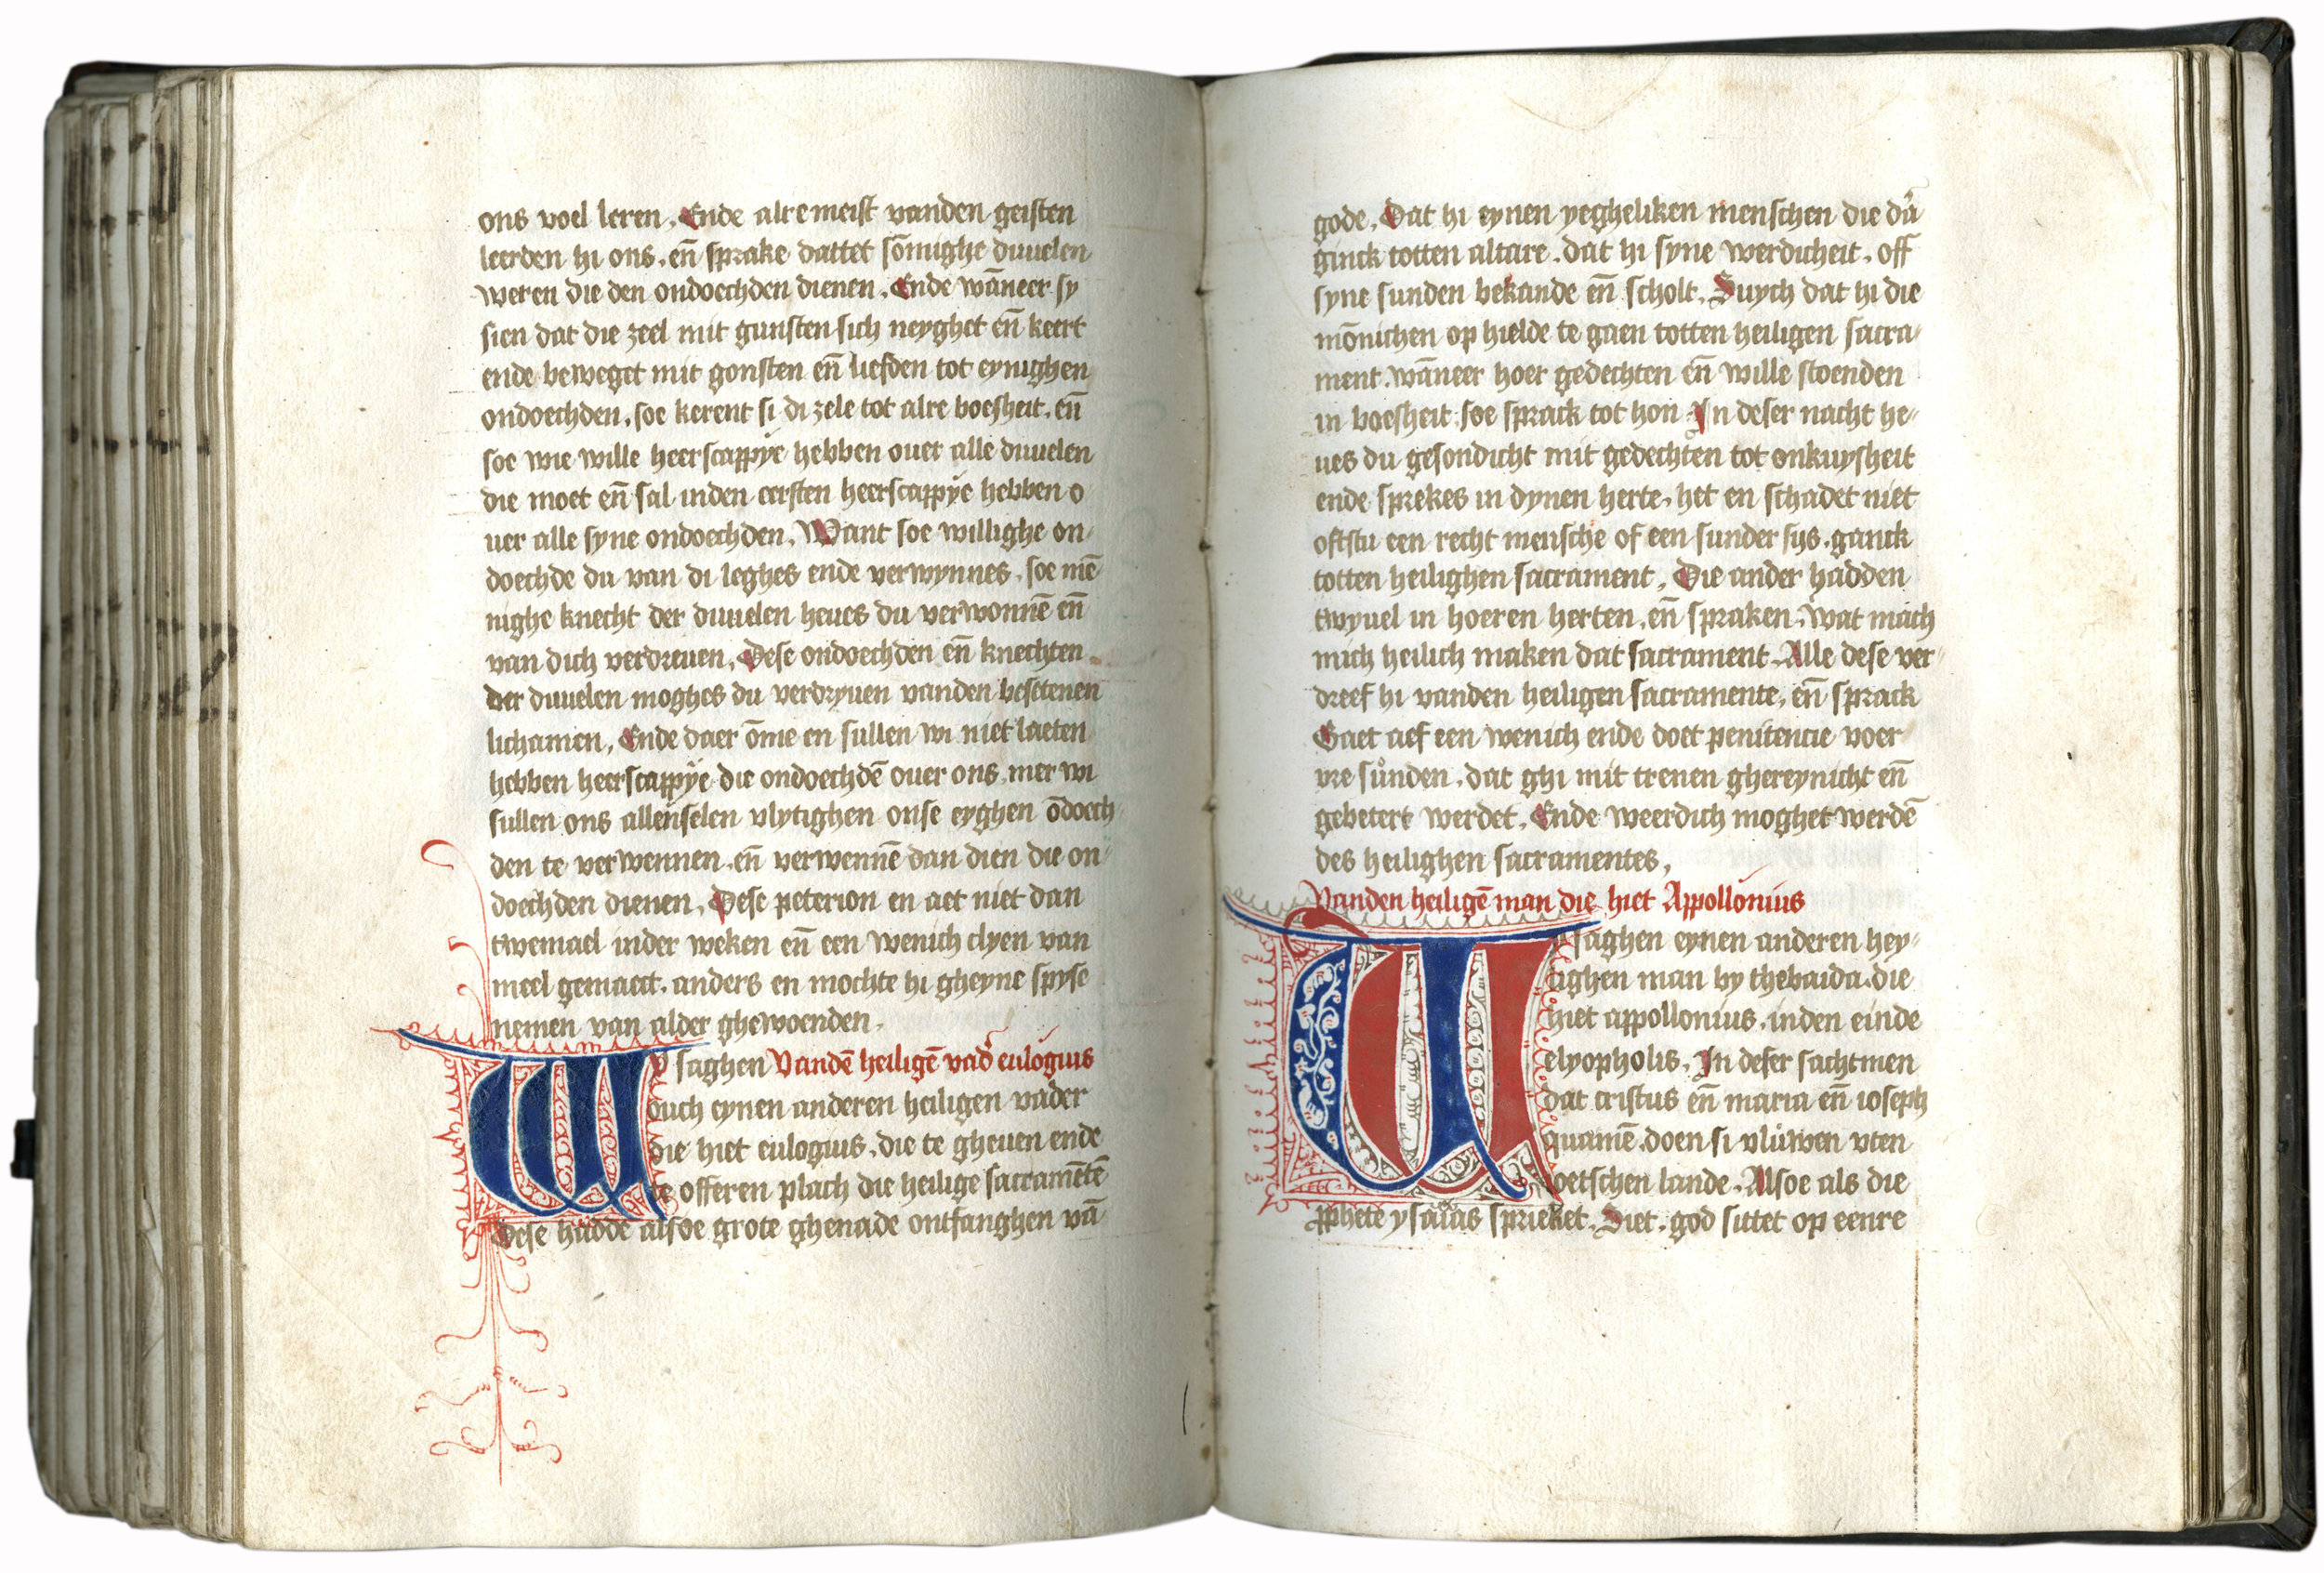 ons voel leren. Ende alremeist vanden geisten
leerden hi ons. en̄ sprake dattet sōmighe duuelen
weren die den ondoechden dienen. Ende wāneer sy
sien dat die zeel mit gunsten sich neyghet en̄ keert
ende beweget mit gonsten en̄ liefden tot eynighen
ondoechden. soe kerent si di zele tot alre boesheit. en̄
soe wie wille heerscappye hebben ouer alle duuelen
die moet en̄ sal inden eersten heerscappye hebben o
uer alle syne ondoechden. Want soe willighe on
doechde du van di leghes ende verwynnes. soe mē
nighe knecht der duuelen heues du verwonnē en̄
van dich verdreuen. Dese ondoechden en̄ knechten
der duuelen moghes du verdryuen vanden besetenen
lichamen. Ende daer ōme en sullen wi niet laeten
hebben heerscappye die ondoechdē ouer ons. mer wi
sullen ons allenselen vlytighen onse eyghen ōdoech
den te verwennen. en̄ verwennē dan dien die on
doechden dienen. Dese peterion en aet niet dan
twemael inder weken en̄ een wenich clyen van
meel gemaect. anders en mochte hi gheyne spyse
nemen van alder ghewoenden.
Wy saghen Vandē heiligē vad' eulogius
ouch eynen anderen heiligen vader
die hiet eulogius. die te gheuen ende
te offeren plach die heilige sacramētē
Dese hadde alsoe grote ghenade ontfanghen vā
gode. Dat hi eynen yegheliken menschen die da'
ginck totten altare. dat hi syne werdicheit. off
syne sunden bekande en̄ scholt. Suych dat hi die
mōnichen op hielde te gaen totten heiligen sacra
ment. wāneer hoer gedechten en̄ wille stoenden
in boesheit. soe sprack tot hon In deser nacht he
ues du gesondicht mit gedechten tot onkuysheit
ende sprekes in dynen herte. het en schadet niet
oftstu een recht mensche of een sunder sys. ganck
totten heilighen sacrament. Die ander hadden
twyuel in hoeren herten. en̄ spraken. wat mach
mich heilich maken dat sacrament. Alle dese ver
dreef hi vanden heiligen sacramente. en̄ sprack
Gaet aef een wenich ende doet penitencie voer
vre sůnden. dat ghi mit trenen ghereynicht en̄
gebetert werdet. Ende weerdich moghet werdē
des heilighen sacramentes.
Vanden heiligē man die hiet Appollonius
Wy saghen eynen anderen hey
lighen man by thebaida. die
hiet appollonius. inden einde
elyopholis. In deser sachtmen
dat cristus en̄ maria en̄ ioseph
quamē. doen si vlůwen vten
ioetschen lande. Alsoe als die
pphete ysaias sprieket. Siet. god sittet op eenre